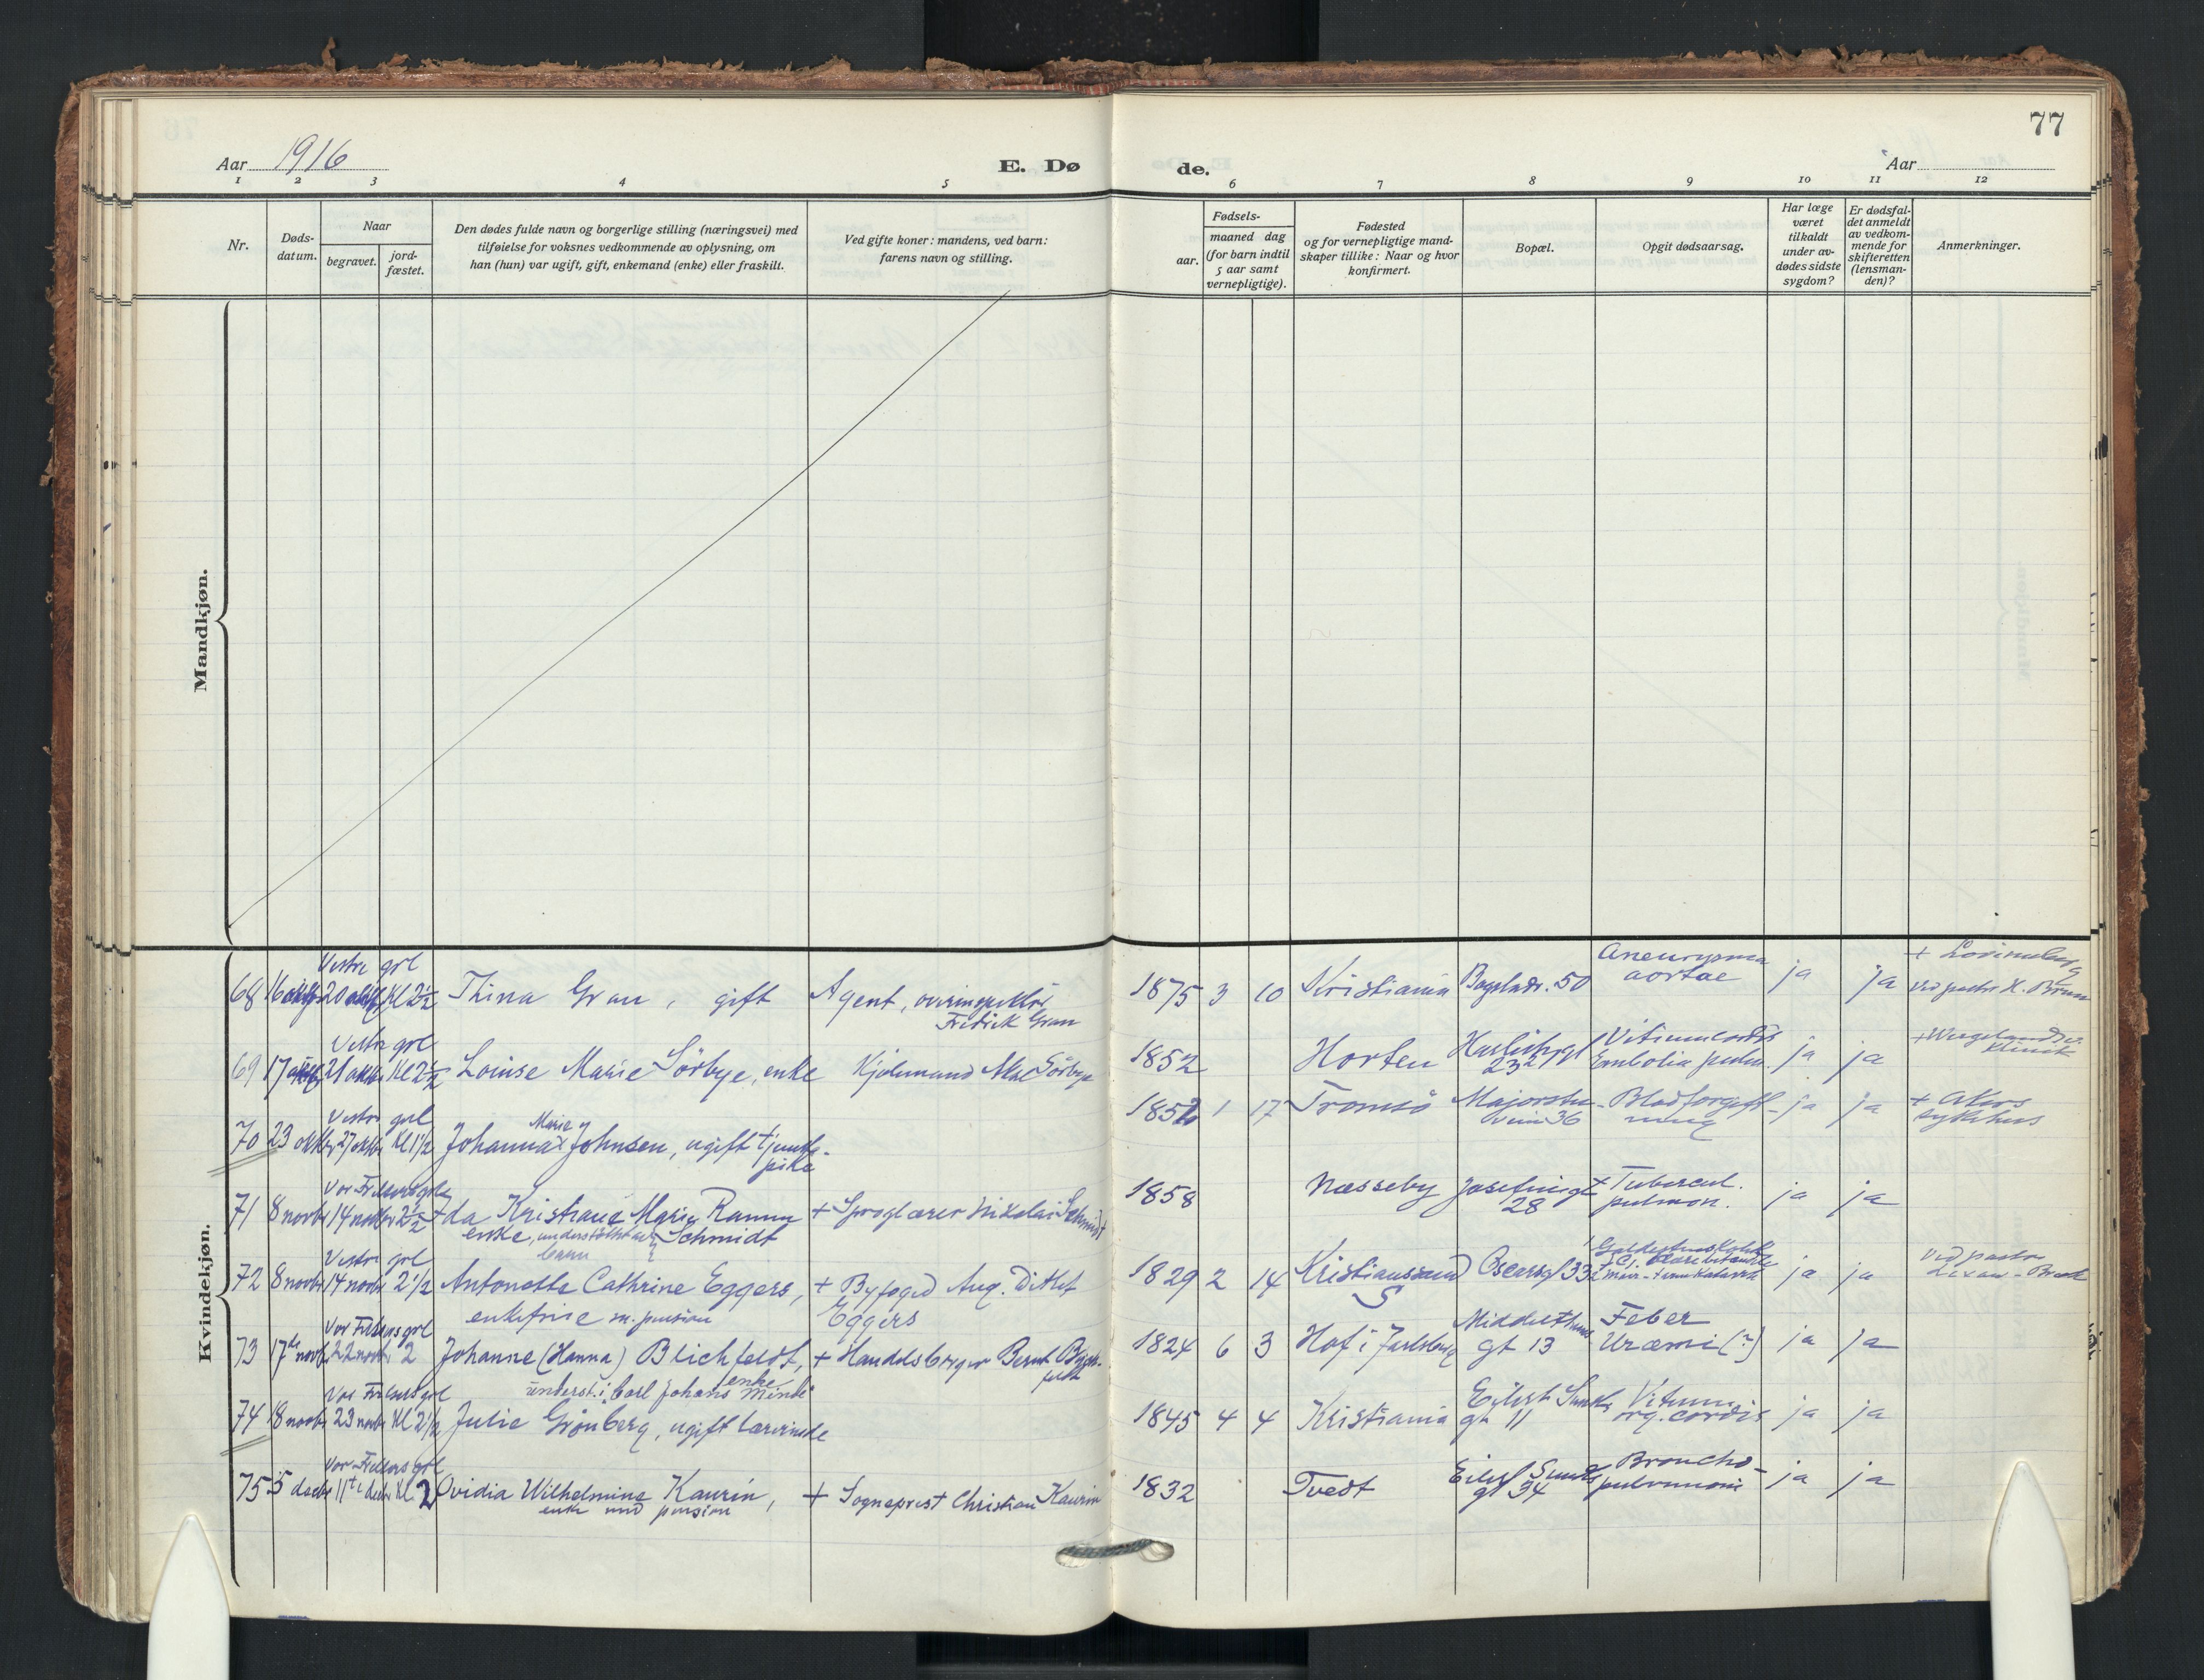 77
Aar 1916
E. Dø
de.
Aar
1 2 3 4 5 6 7 8 9 10 11 12
Nr.
Døds-
datum.
Naar
begravet.
jord-
fæstet.
Den dødes fulde navn og borgerlige stilling (næringsvei) med
tilføielse for voksnes vedkommende av oplysning, om
han (hun) var ugift, gift, enkemand (enke) eller fraskilt.
Ved gifte koner: mandens, ved barn:
farens navn og stilling.
Fødsels-
aar.
maaned dag
(for barn indtil
5 aar samt
vernepligtige).
Fødested
og for vernepligtige mand-
skaper tillike: Naar og hvor
konfirmert.
Bopæl.
Opgit dødsaarsag.
Har læge
været
tilkaldt
under av-
dødes sidste
sygdom?
Er dødsfal-
det anmeldt
av vedkom-
mende for
skifteretten
(lensman-
den)?
Anmerkninger.
Mandkjøn.
Kvindekjøn.
Vestre grl
68 16 oktbr 20 oktbr Kl 2 1/2 Thina Gran, gift Agent,
Fredrik Gran
1875 3 10 Kristiania 50 Aneurysma
aortae ja ja
Ved pastor K. Brun
Vestre grl
69 17 oktbr 21 oktbr Kl 2 1/2 Louise Marie Sörbye, enke Kjølmand Sörbye
1852 Horten 23 Vitium cordis
Embolia pulm. ja ja
Klinik
Vestre grl
70 23 oktbr 27 oktbr Kl 1 1/2 Johanna Marie Johnsen, ugift tjeneste-
pike
1852 1 17 Tromsö Majorstu-
veien 36 Blodforgift-
ning ja ja + Akers
sykehus
Vor Frelsers grl
71 8 novbr 14 novbr 2 1/2 Kristiane Marie Ramm
Schmidt
enke, understöttet av
barn
+ Sproglærer Nikolai Schmidt
1858 Næsseby Josefinegt
28 Tubercul.
pulmon. ja ja
Vestre grl
72 8 novbr 14 novbr 2 1/2 Antonette Cathrine Eggers,
enkefrue m. pension
+ Byfoged Aug. Ditlef
Eggers
1829 2 14 Kristianssand
S Oscarsgt 33 ja ja Ved pastor
Vor Frelsers grl
73 17de novbr 22 novbr 2 Johanne (Hanna) Blichfeldt,
enke
underst. i "Carl Johans Minde"
+ Handelsborger Bernt Blich-
feldt
1824 6 3 Hof i Jarlsberg Middelthuns
gt 13 Feber
Uræmi (?) ja ja
Vor Frelsers grl
74 18 novbr 23 novbr Kl 2 1/2 Julie Grönberg, ugift lærerinde
1845 4 4 Kristiania Eilert Sundts
gt 11 Vitium
org. cordis ja ja
Vor Frelsers grl
75 5 decbr 11te decbr Kl 2 Ovidia Wilhelmine Kaurin,
enke med pension
+ Sogneprest Christian Kaurin
1832 Tvedt Eilert Sundts
gt 34 Broncho-
pulvmoni ja ja